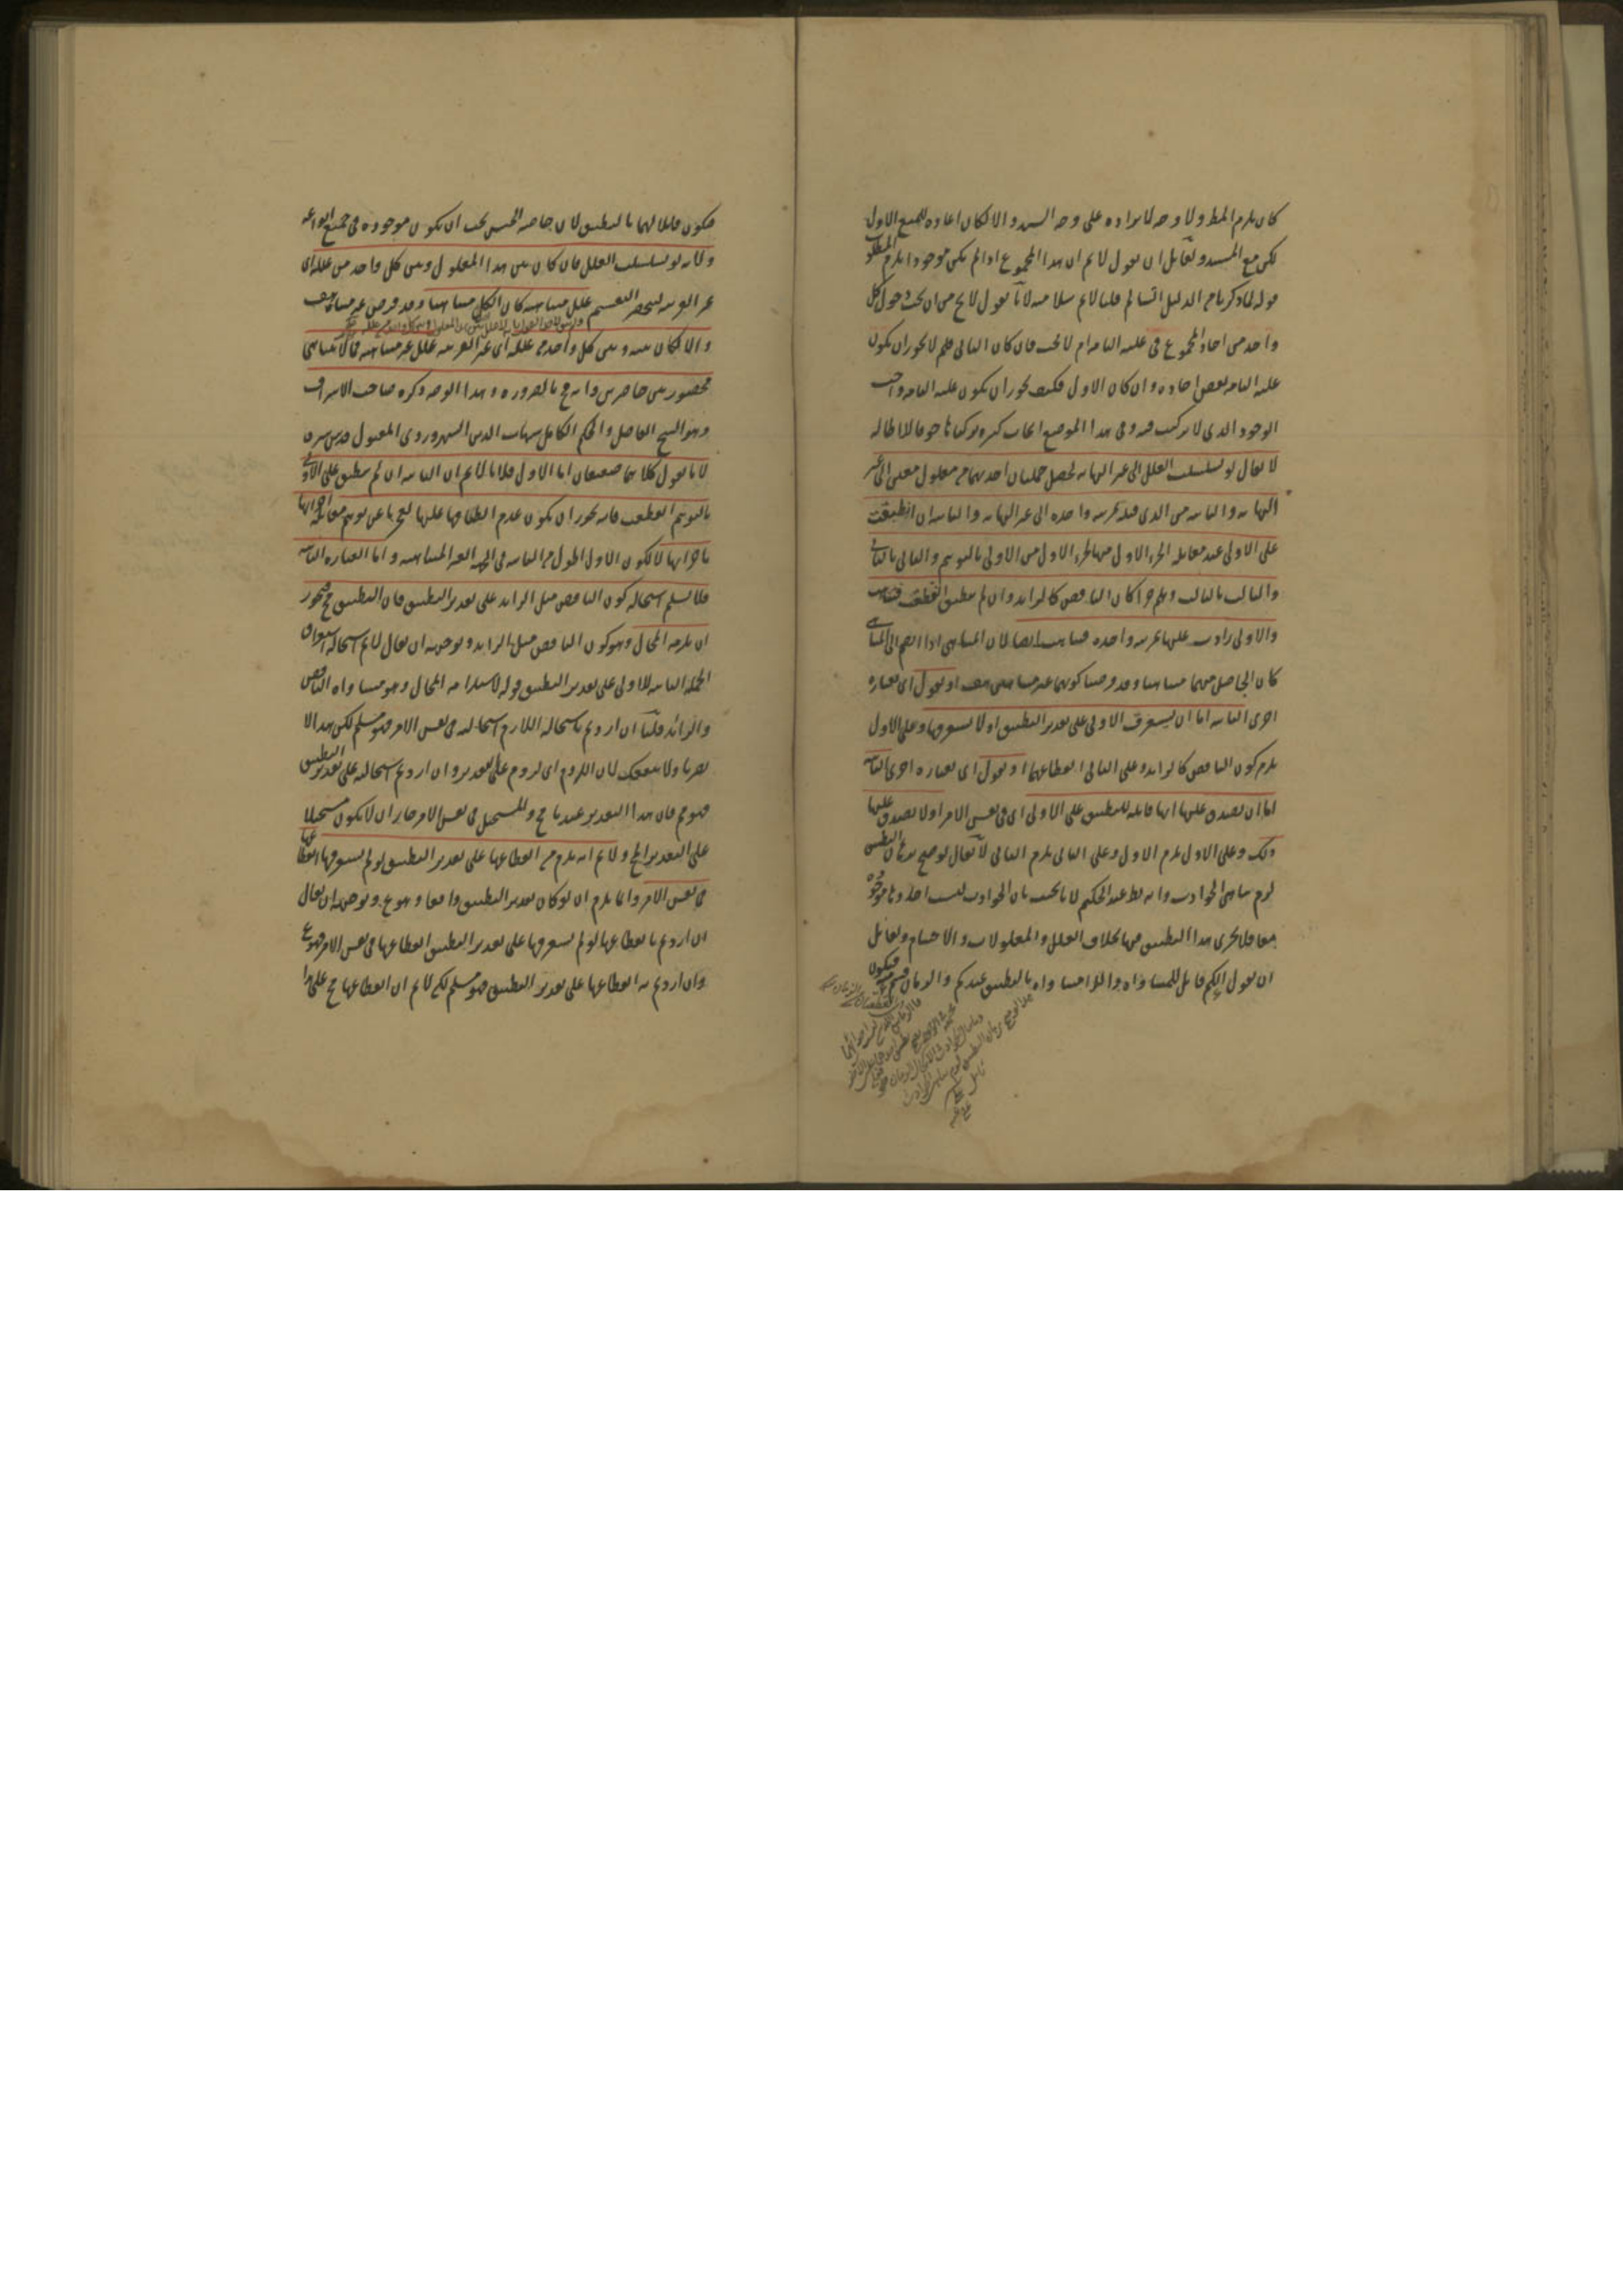 كان يلزم المط ولا وجه لايراده على وجه السند والا لكان اعادة للمنع الاول
لكن مع المسند ولقائل ان يقول لانم ان هذا المجموع اذا لم يكن موجودا يلزم المطلوب
قوله لما ذكرنا من الدليل السالم قلنا لانم سلامته لانا نقول لا يخ من ان يجب دخول كل
واحد من احاد المجموع في علته التامة ام لا يجب فان كان الثاني فلم لا يجوز ان يكون
علته التامة بعض احاده وان كان الاول فكيف يجوز ان يكون علته التامة واجب
الوجود الذي لا تركيب فيه وفي هذا الموضع ابحاث كثيرة تركناها خوفا للاطالة
لا يقال لو تسلسلت العلل الى غير النهاية لحصل جملتان احديهما من معلول معين الى غير
النهاية والثانية من الذي قبله بمرتبة واحدة الى غير النهاية والثانية ان انطبقت
على الاولى عند مقابلة الجزء الاول منها بالجزء الاول من الاولى بالتوهم والثاني بالثاني
والثالث بالثالث وهلم جرا كان الناقص كالزايد وان لم ينطبق انقطعت فتناهت
والاولى زادت عليها بمرتبة واحدة فتناهت ايضا لان المتناهي اذا انضم الى المتناهي
كان الحاصل منهما متناهيا وقد فرضنا كونهما غير متناهيين هف او نقول اي بعبارة
اخرى الثانية اما ان يستغرق الاولى على تقدير التطبيق او لا يستغرقها وعلى الاول
يلزم كون الناقص كالزايد وعلى الثاني انقطاعهما او نقول اي بعبارة اخرى الثانية
اما ان يصدق عليها انها قابلة للتطبيق على الاولى اي في نفس الامر او لا يصدق عليها
ذلك وعلى الاول يلزم الاول وعلى الثاني يلزم الثاني لا يقال لو صح برهان التطبيق
لزم تناهي الحوادث وانه بط عند الحكيم لانا نجيب بان الحوادث ليست احادها موجودة
معا فلا يجري هذا التطبيق فيها بخلاف العلل والمعلولات والاجسام ولقائل
ان يقول الكم قابل للمساواة واللامساواة بالتطبيق عندكم والزمان قسم منه فيكون
فيكون قابلا لهما بالتطبيق لان خاصة الجنس يجب ان تكون موجودة في جميع انواعه
ولانه لو تسلسلت العلل فان كان بين هذا المعلول وبين كل واحد من علله اي
غير القريبة لينحصر التقسيم علل متناهية كان الكل متناهيا وقد فرض غير متناه هف
والا لكان بينه وبين كل واحد من علله اي غير القريبة علل غير متناهية فما لا يتناهى
محصور بين حاصرين وانه مح بالضرورة وهذا الوجه ذكره صاحب الاشراق
وهو الشيخ الفاضل والحكيم الكامل شهاب الدين السهروردي المقتول قدس سره
لانا نقول كلاهما ضعيفان اما الاول فلانا لانم ان الثانية ان لم ينطبق على الاولى
بالتوهم انقطعت فانه يجوز ان يكون عدم انطباقها عليها لعجزنا عن توهم مقابلة اجزائها
باجزائها لا لكون الاولى اطول من الثانية في الجهة الغير المتناهية واما العبارة الثانية
فلا نسلم استحالة كون الناقص مثل الزايد على تقدير التطبيق فان التطبيق مح فيجوز
ان يلزمه المحال وهو كون الناقص مثل الزايد وتوجيهه ان يقال لانم استحالة استغراق
الجملة الثانية للاولى على تقدير التطبيق قوله لاستلزامه المحال وهو مساواة الناقص
والزائد قلنا ان اردتم باستحالة اللازم استحالته في نفس الامر فهو مسلم لكن هذا لا
يضرنا ولا ينفعك لان اللزوم اي لزوم على تقدير وان اردتم استحالته على تقدير التطبيق
فهو مم فان هذا التقدير عندنا مح والمستحيل في نفس الامر جاز ان لا يكون مستحيلا
على التقدير المح ولانم انه يلزم من انقطاعها على تقدير التطبيق لو لم يستغرقها انقطاعها
في نفس الامر وانما يلزم ان لو كان تقدير التطبيق واقعا وهو مم وتوجيهه ان يقال
ان اردتم بانقطاعها لو لم يستغرقها على تقدير التطبيق انقطاعها في نفس الامر فهو مم
وان اردتم به انقطاعها على تقدير التطبيق فهو مسلم لكن لانم ان انقطاعها مح على